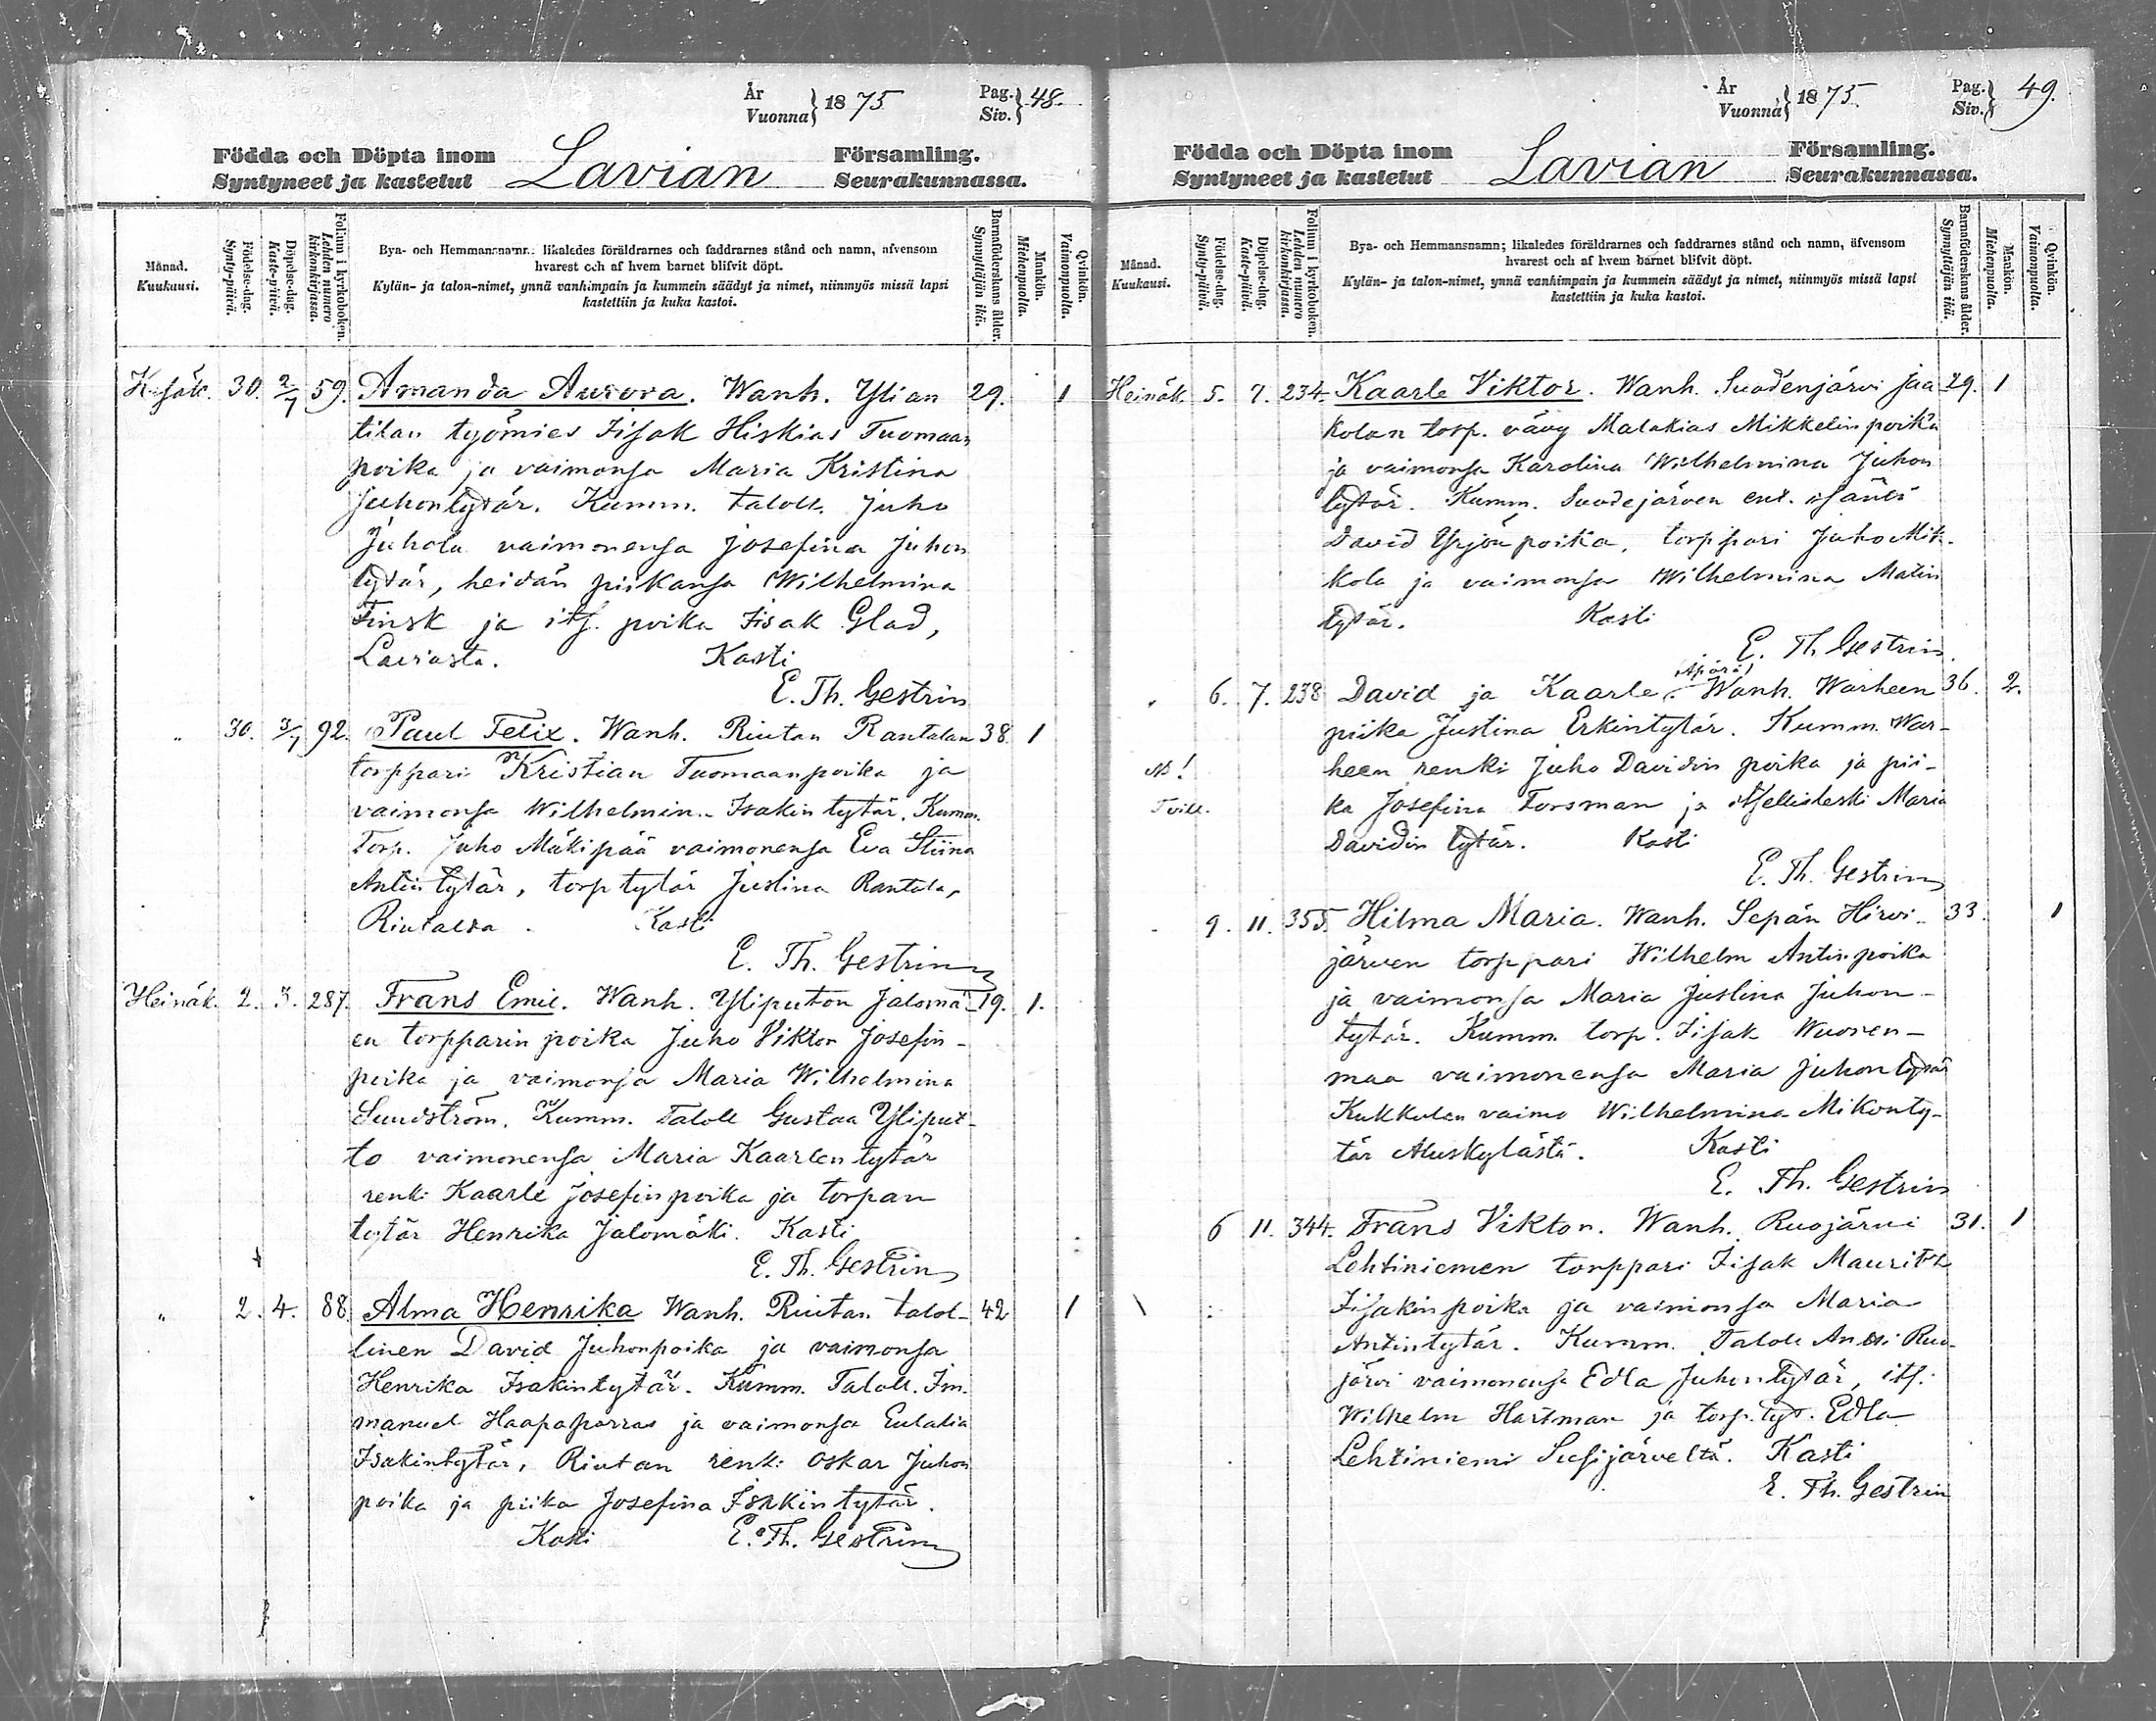 År
Vuonna } 1875
Pag.
Siv. } 48.
Födda och Döpta inom
Syntyneet ja kastetut
Lavian
Församling.
Seurakunnassa.
Månad.
Kuukausi.
Födelse-dag.
Synty-päivä.
Döpelse-dag.
Kaste-päivä.
Folium i kyrkoboken.
Lehden numero kirkonkirjassa.
Bya- och Hemmansnamn; likaledes föräldrarnes och faddrarnes stånd och namn, äfvensom
hvarest och af hvem barnet blifvit döpt.
Kylän- ja talon-nimet, ynnä vanhimpain ja kummein säädyt ja nimet, niinmyös missä lapsi
kastettiin ja kuka kastoi.
Barnaföderskans ålder.
Synnyttäjän ikä.
Mankön.
Miehenpuolta.
Qvinkön.
Vaimonpuolta.
Kesäk. 30. 2/7 59. Amanda Aurora. Wanh. Ylian 29. 1
tilan työmies Iisak Hiskias Tuomaan
poika ja vaimonsa Maria Kristina
Juhontytär. Kumm. taloll. Juho
Juhola vaimonensa Josefina Juhon
tytär, heidän piikansa Wilhelmina
Finsk ja its. poika Iisak Glad,
Laviasta. Kasti
E. Th. Gestrin
" 30. 3/7 92. Paul Felix. Wanh. Riutan Rantalan 38 1
torppari Kristian Tuomaanpoika ja
vaimonsa Wilhelmina Isakin tytär. Kumm.
Torp. Juho Mäkipää vaimonensa Eva Stiina
Antin tytär, torp tytär Justina Rantala,
Riutalta. Kasti
E. Th. Gestrin
Heinäk. 2. 3. 287. Frans Emil. Wanh. Yliputon Jalomä- 19. 1.
en torpparin poika Juho Viktor Josefin-
poika ja vaimonsa Maria Wilhelmina
Sundström. Kumm. Taloll Gustaa Yliput-
to vaimonensa Maria Kaarlen tytär
renki Kaarle Josefin poika ja torpan
tytär Henrika Jalomäki. Kasti
E. Th. Gestrin
" 2. 4. 88. Alma Henrika Wanh. Riutan talol- 42 1
linen David Juhonpoika ja vaimonsa
Henrika Isakintytär. Kumm. Taloll. Im-
manuel Haapaparras ja vaimonsa Eulalia
Isakintytär, Riutan renki Oskar Juhon
poika ja piika Josefina Isakin tytär.
Kasti E. Th. Gestrin
År
Vuonna } 1875.
Pag.
Siv. } 49.
Födda och Döpta inom
Syntyneet ja kastetut
Lavian
Församling.
Seurakunnassa.
Månad.
Kuukausi.
Födelse-dag.
Synty-päivä.
Döpelse-dag.
Kaste-päivä.
Folium i kyrkoboken.
Lehden numero kirkonkirjassa.
Bya- och Hemmansnamn; likaledes föräldrarnes och faddrarnes stånd och namn, äfvensom
hvarest och af hvem barnet blifvit döpt.
Kylän- ja talon-nimet, ynnä vanhimpain ja kummein säädyt ja nimet, niinmyös missä lapsi
kastettiin ja kuka kastoi.
Barnaföderskans ålder.
Synnyttäjän ikä.
Mankön.
Miehenpuolta.
Qvinkön.
Vaimonpuolta.
Heinäk. 5. 7. 234. Kaarle Viktor. Wanh. Suodenjärvi Jaa 29. 1
kolan torp. vävy Malakias Mikkelin poika
ja vaimonsa Karolina Wilhelmina Juhon
tytär. Kumm. Suodejärven ent. isäntä
David Yrjön poika, torppari Juho Mik-
kola ja vaimonsa Wilhelmina Matin
tytär. Kasti
E. Th. Gestrin.
Äpärä
" 6. 7. 238 David ja Kaarle. Wanh. Warheen 36. 2.
piika Justina Erkintytär. Kumm. War-
NB! heen renki Juho Davidin poika ja pii-
Tvill. ka Josefina Forsman ja itsellisleski Maria
Davidin tytär. Kasti
E. Th. Gestrin
9. 11. 355. Hilma Maria. Wanh. Sepän Hirvi- 33. 1
järven torppari Wilhelm Antin poika
ja vaimonsa Maria Justina Juhon-
tytär. Kumm. torp. Iisak Wuoren-
maa vaimonensa Maria Juhontytär
Kukkulan vaimo Wilhelmina Mikonty-
tär Aluskylästä. Kasti
E. Th. Gestrin
6 11. 344. Frans Viktor. Wanh. Ruojärvi 31. 1
Lehtiniemen torppari Iisak Mauritz
Iisakin poika ja vaimonsa Maria
Antintytär. Kumm. Taloll Antti Ruo-
järvi vaimonensa Edla Juhontytär, its.
Wilhelm Hartman ja torp. tyt. Edla
Lehtiniemi Susijärveltä. Kasti
E. Th. Gestrin